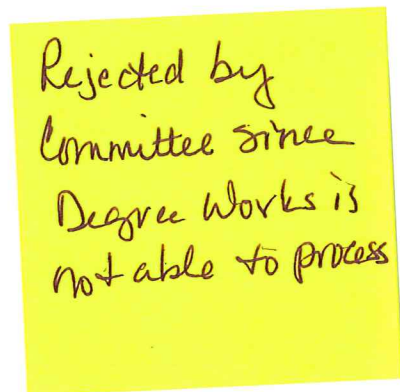 Rejected by
Committee since
Degree Works is
not able to process